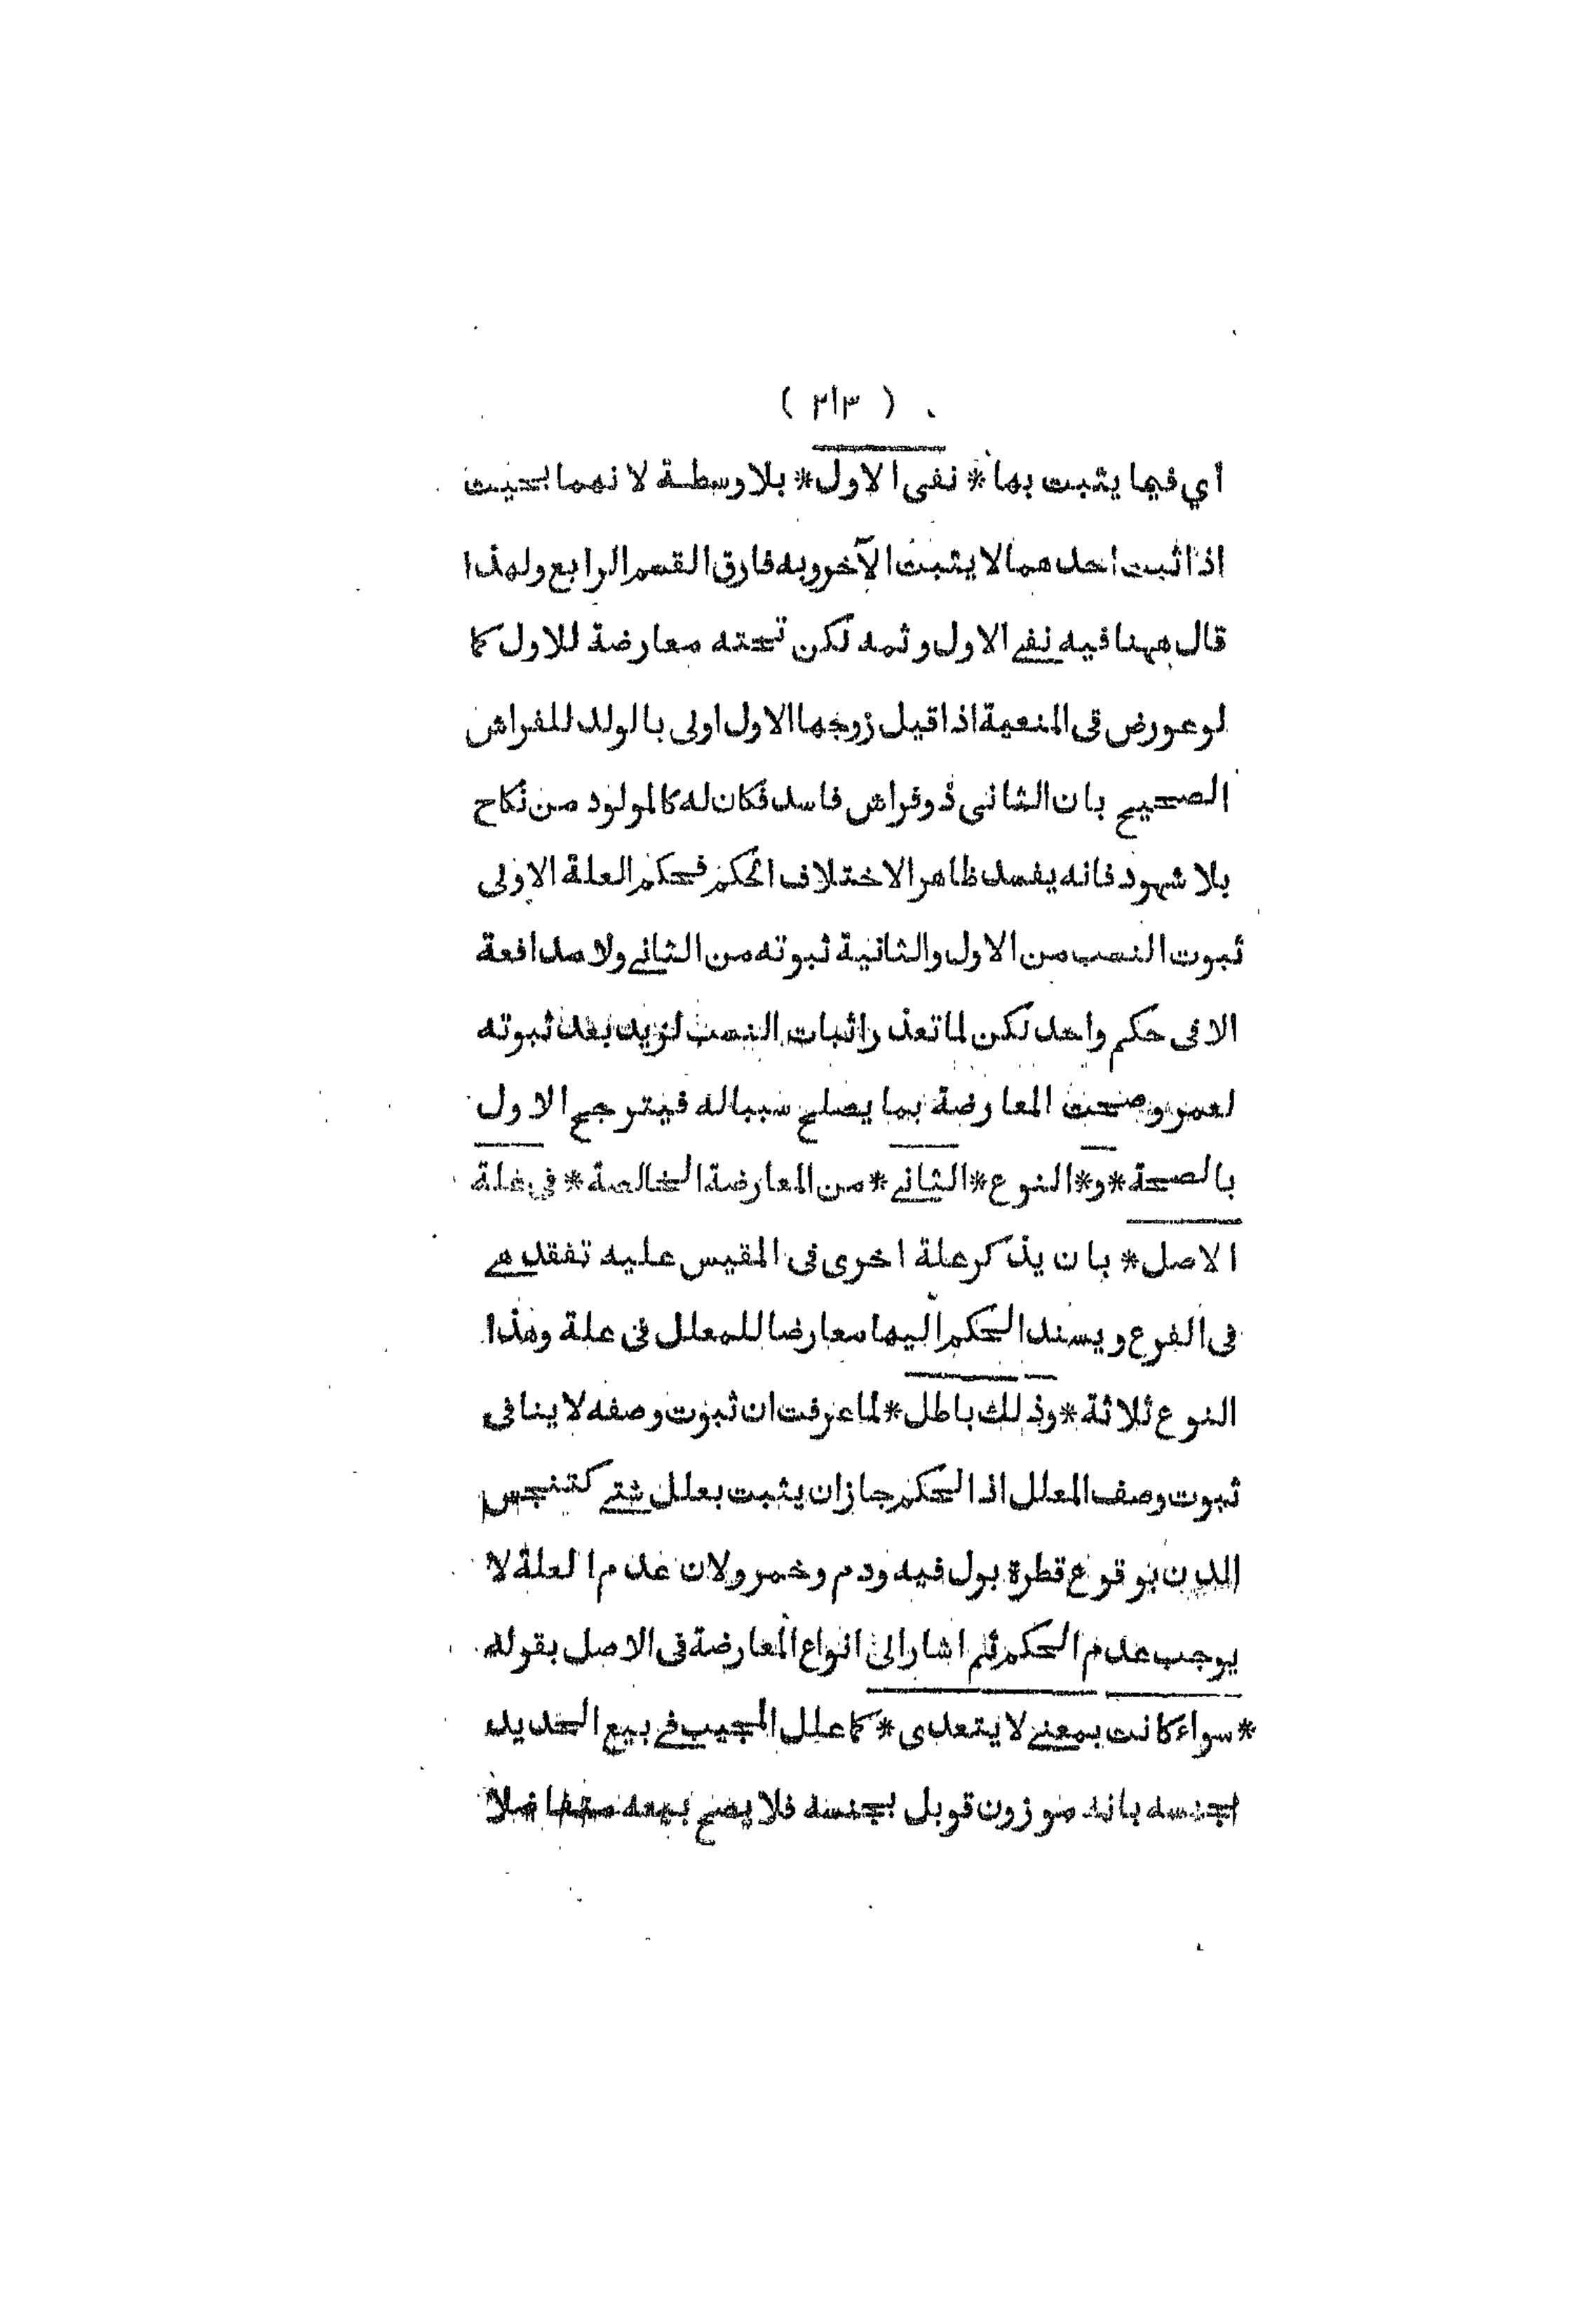 ( ٢١٣ )
أي فيما يثبت بها * نفى الاول * بلا وسطة لا نهما بحيث
اذا ثبت احدهما لا يثبت الآخر وبه فارق القسم الرابع ولهذا
قال ههنا فيه نفے الاول وثمه لكن تحته معارضة للاول كما
لو عورض فى المنعية اذا قيل زوجها الاول اولى بالولد للفراش
الصحيح بان الثانى ذو فراش فاسد فكان له كالمولود من نكاح
بلا شهود فانه يفسد ظاهر الاختلاف الحكم فحكم العلة الاولى
ثبوت النسب من الاول والثانية ثبوته من الثانے ولا مدافعة
الا فى حكم واحد لكن لما تعذر اثبات النسب لزيد بعد ثبوته
لعمرو صحت المعارضة بما يصلح سببا له فيترجح الاول
بالصحة * و * النوع * الثانے * من المعارضة الخالصة * فى علة
الاصل * بان يذكر علة اخرى فى المقيس عليه تفقد هے
فى الفرع ويسند الحكم اليها معارضا للمعلل فى علة وهذا
النوع ثلاثة * وذلك باطل * لما عرفت ان ثبوت وصفه لا ينافى
ثبوت وصف المعلل اذ الحكم جاز ان يثبت بعلل شتے كتنجس
الدن بوقوع قطرة بول فيه ودم وخمر ولان عدم العلة لا
يوجب عدم الحكم ثم اشار الى انواع المعارضة فى الاصل بقوله
* سواء كانت بمعنے لا يتعدى * كما علل المجيب فے بيع الحديد
بجنسه بانه موزون قوبل بجنسه فلا يصح بيعه متفاضلا